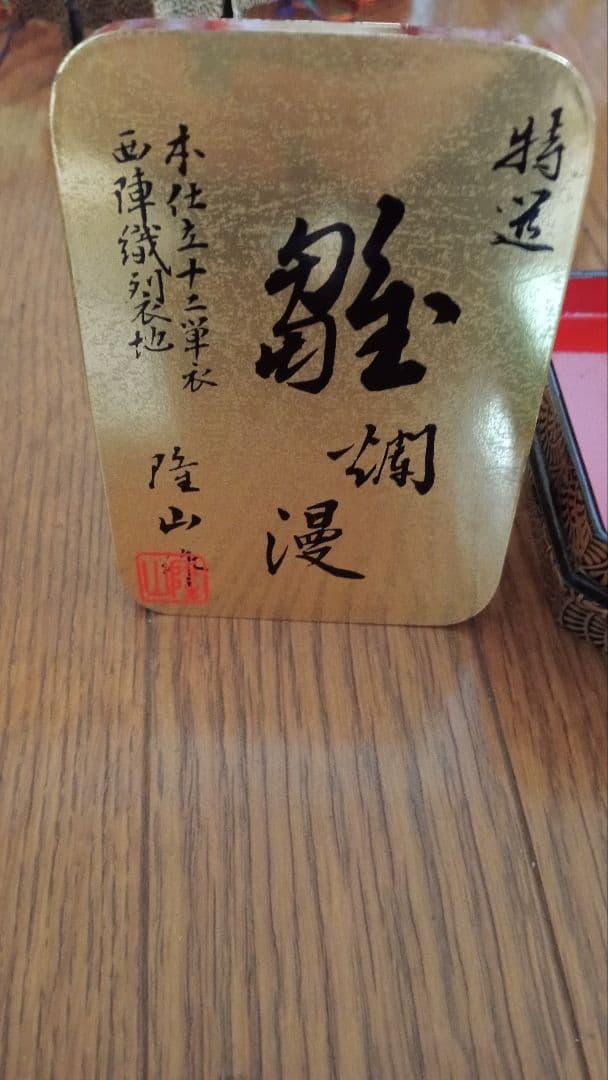 特選
雛
爛
漫
本仕立十二単衣
西陣織裂地
隆山